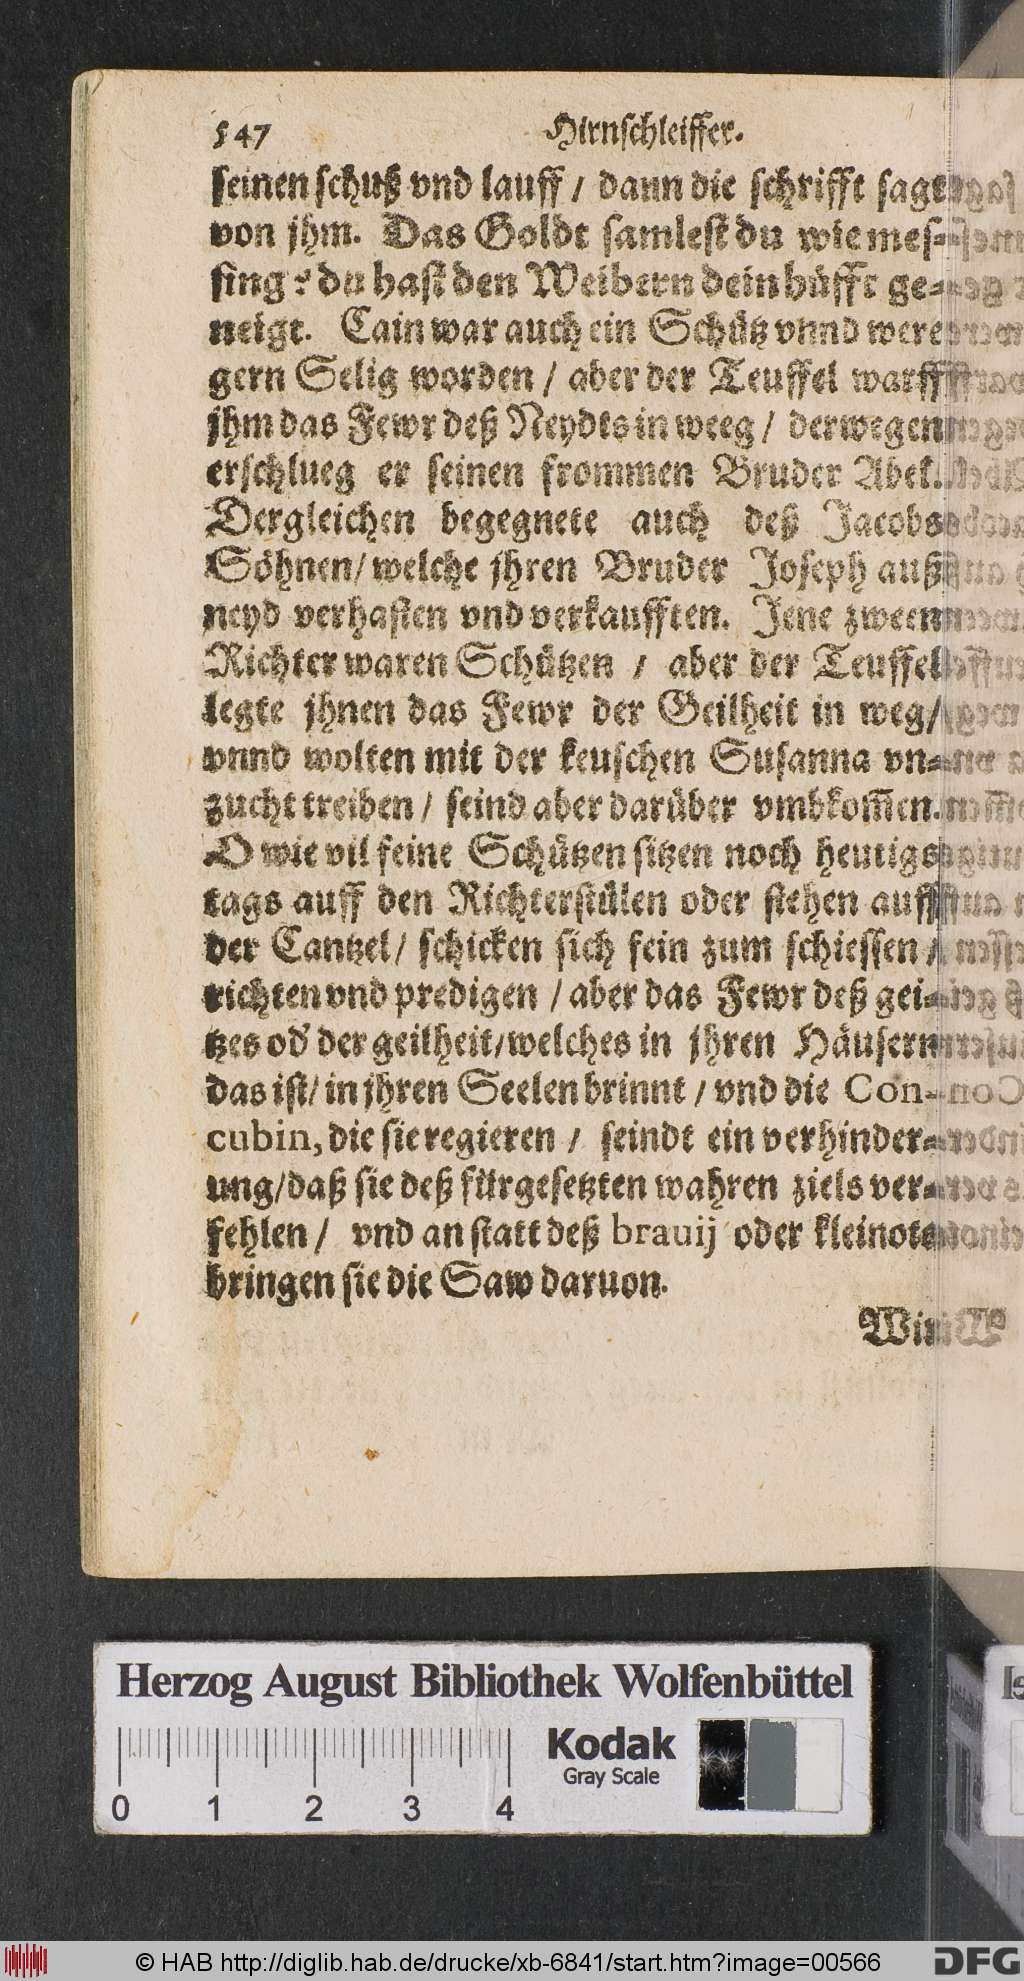 547 Hirnschleiffer.
seinen schuß vnd lauff / dann die schrifft sagt
von jhm. Das Goldt samlest du wie mes-
sing: du hast den Weibern dein hüfft ge-
neigt. Cain war auch ein Schütz vnnd were
gern Selig worden / aber der Teuffel warff
jhm das Fewr deß Neydts in weeg / derwegen
erschlueg er seinen frommen Bruder Abel.
Dergleichen begegnete auch deß Jacobs
Söhnen / welche jhren Bruder Joseph auß
neyd verhasten vnd verkaufften. Jene zween
Richter waren Schützen / aber der Teuffel
legte jhnen das Fewr der Geilheit in weg /
vnnd wolten mit der keuschen Susanna vn-
zucht treiben / seind aber darüber vmbkom̄en.
O wie vil feine Schützen sitzen noch heutigs
tags auff den Richterstülen oder stehen auff
der Cantzel / schicken sich fein zum schiessen /
richten vnd predigen / aber das Fewr deß gei-
tzes od' der geilheit / welches in jhren Häusern
das ist / in jhren Seelen brinnt / vnd die Con-
cubin, die sie regieren / seindt ein verhinder-
ung / daß sie deß fürgesetzten wahren ziels ver-
fehlen / vnd an statt deß brauij oder kleinots
bringen sie die Saw daruon.
Wir
Herzog August Bibliothek Wolfenbüttel
Kodak
Gray Scale
0 1 2 3 4
© HAB http://diglib.hab.de/drucke/xb-6841/start.htm?image=00566
DFG